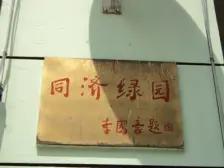 同济绿园
李国豪题